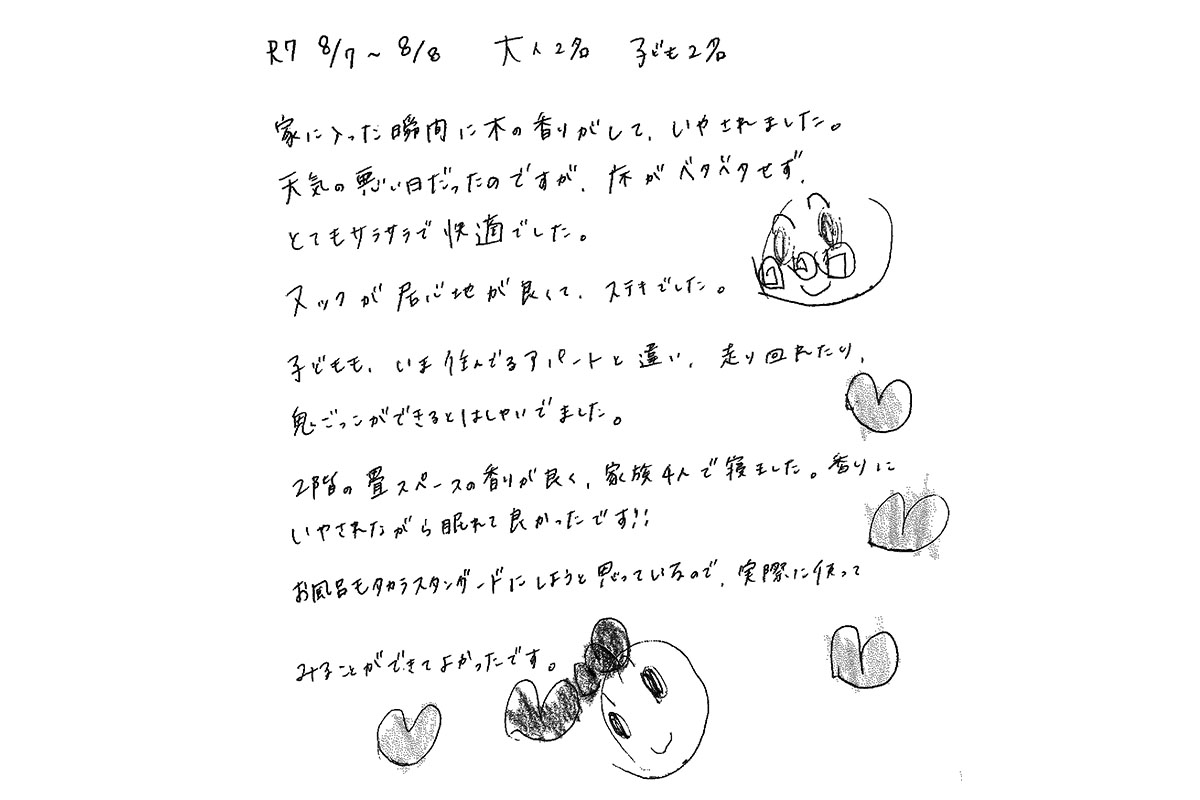 R7 8/7~8/8 大人2名 子ども2名
家に入った瞬間に木の香りがして、いやされました。
天気の悪い日だったのですが、床がベタベタせず、
とてもサラサラで快適でした。
ヌックが居心地が良くて、ステキでした。
子どもも、いま住んでるアパートと違い、走り回れたり、
鬼ごっこができるとはしゃいでました。
2階の畳スペースの香りが良く、家族4人で寝ました。香りに
いやされながら眠れて良かったです!!
お風呂もタカラスタンダードにしようと思っているので、実際に使って
みることができてよかったです。